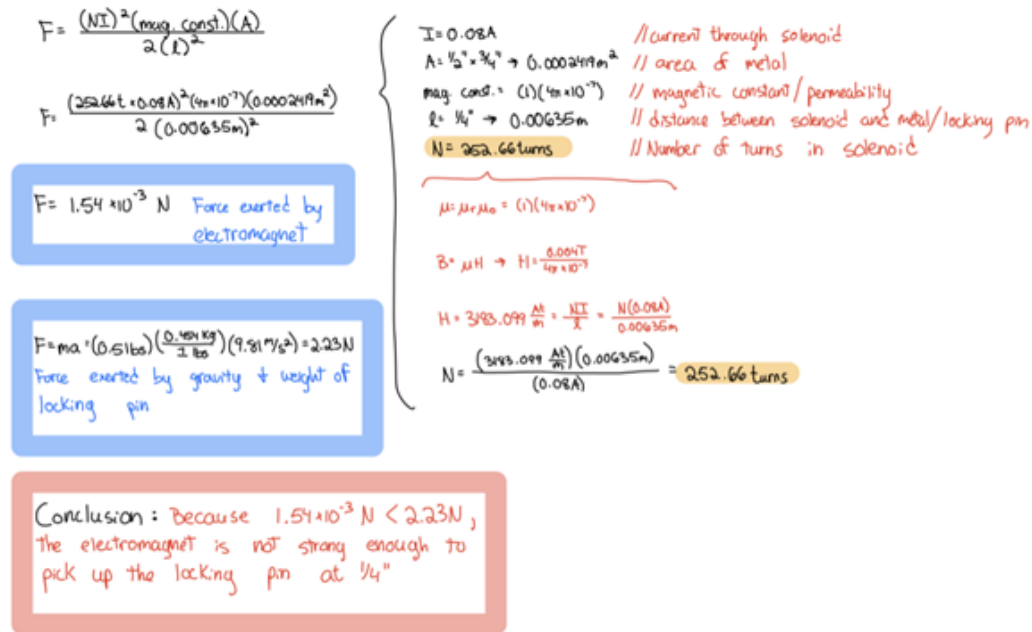 F = (NI)² (mag. const.) (A) / 2(l)²
F = (252.66t × 0.08A)² (4π×10⁻⁷)(0.0002419m²) / 2 (0.00635m)²
F = 1.54 × 10⁻³ N Force exerted by
electromagnet
F = ma = (0.5 lbs) (0.454 kg / 1 lbs) (9.81 m/s²) = 2.23N
Force exerted by gravity & weight of
locking pin
Conclusion: Because 1.54×10⁻³ N < 2.23N,
the electromagnet is not strong enough to
pick up the locking pin at 1/4"
I = 0.08A // current through solenoid
A = 1/2" × 3/4" → 0.0002419m² // area of metal
mag. const. = (1)(4π×10⁻⁷) // magnetic constant/permeability
l = 1/4" → 0.00635m // distance between solenoid and metal/locking pin
N = 252.66 turns // Number of turns in solenoid
μ = μrμ₀ = (1)(4π×10⁻⁷)
B = μH → H = 0.004T / 4π×10⁻⁷
H = 3183.099 At/m = NI/l = N(0.08A) / 0.00635m
N = (3183.099 At/m)(0.00635m) / (0.08A) = 252.66 turns